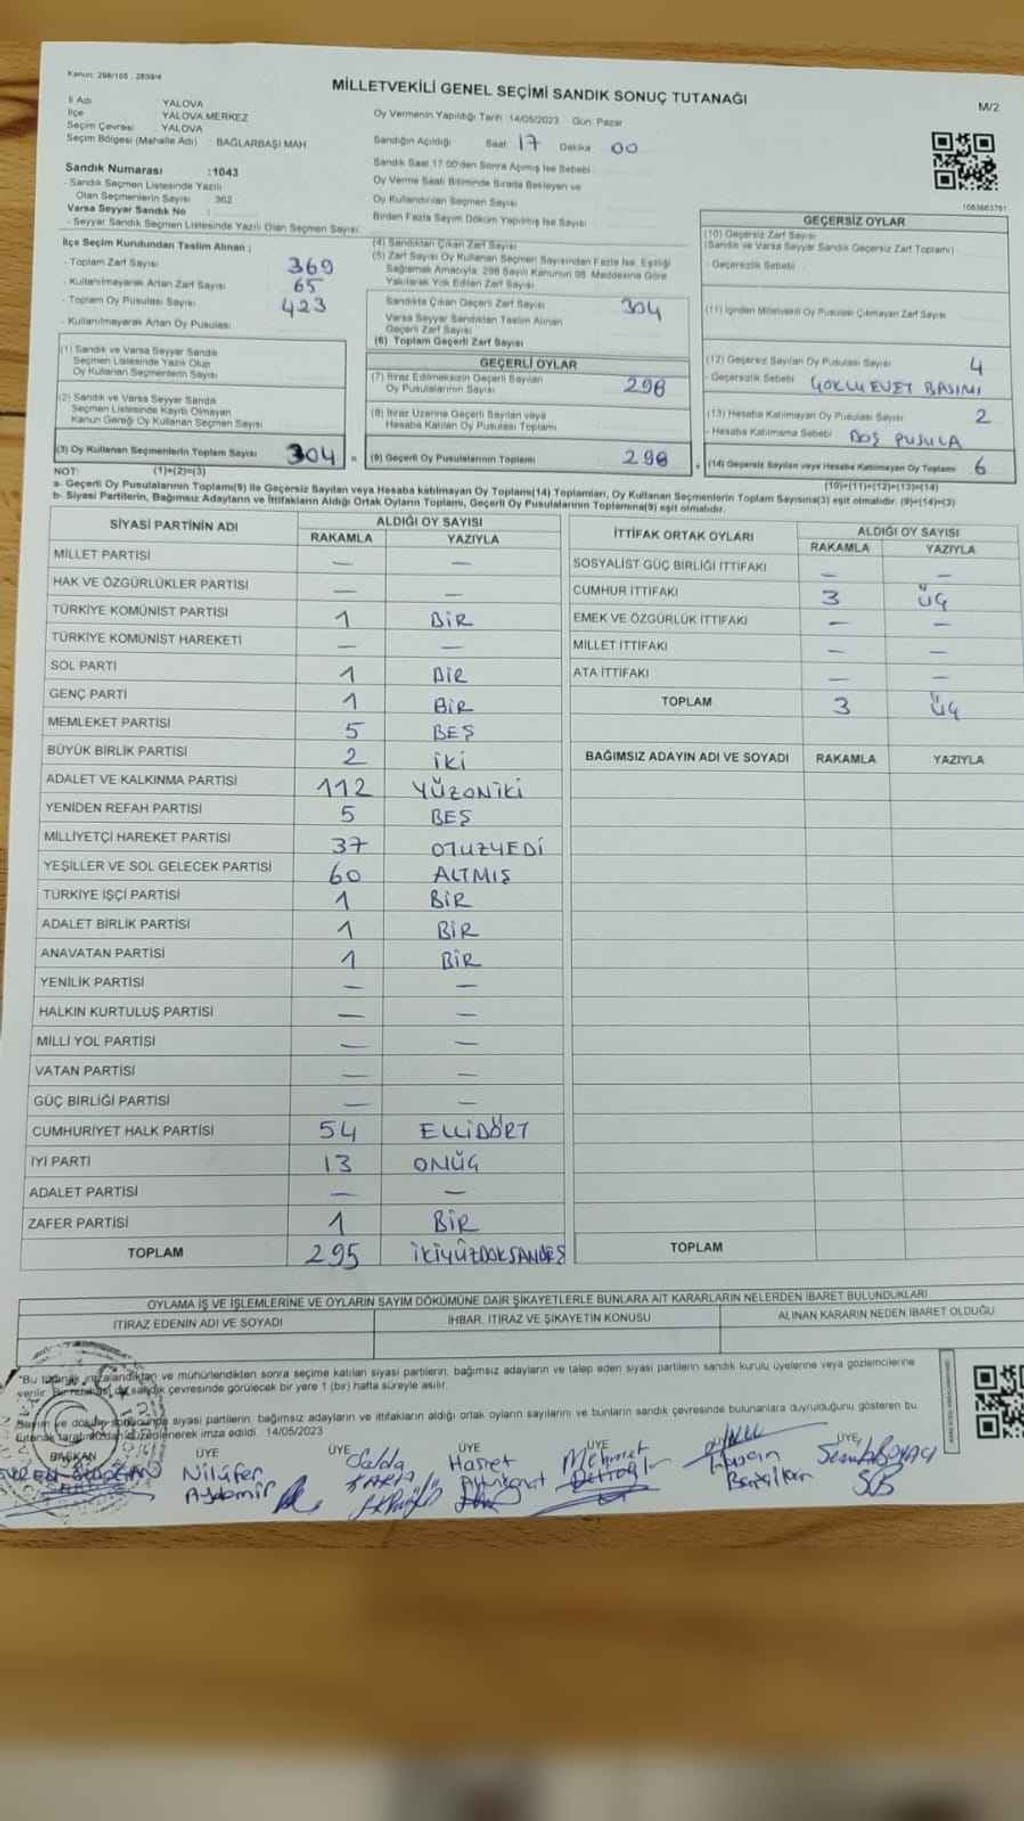 Kanun: 298/105 , 2839/4
MİLLETVEKİLİ GENEL SEÇİMİ SANDIK SONUÇ TUTANAĞI
M/2
İl Adı : YALOVA
İlçe : YALOVA MERKEZ
Seçim Çevresi : YALOVA
Seçim Bölgesi (Mahalle Adı) : BAĞLARBAŞI MAH
Oy Vermenin Yapıldığı Tarih 14/05/2023 Gün: Pazar
Sandığın Açıldığı Saat 17 Dakika 00
Sandık Saat 17.00'den Sonra Açılmış İse Sebebi
Oy Verme Saati Bitiminde Sırada Bekleyen ve
Oy Kullandırılan Seçmen Sayısı
Birden Fazla Sayım Döküm Yapılmış İse Sayısı
Sandık Numarası :1043
- Sandık Seçmen Listesinde Yazılı
Olan Seçmenlerin Sayısı : 362
Varsa Seyyar Sandık No :
- Seyyar Sandık Seçmen Listesinde Yazılı Olan Seçmen Sayısı
İlçe Seçim Kurulundan Teslim Alınan ;
- Toplam Zarf Sayısı 369
- Kullanılmayarak Artan Zarf Sayısı 65
- Toplam Oy Pusulası Sayısı 423
- Kullanılmayarak Artan Oy Pusulası
(1) Sandık ve Varsa Seyyar Sandık
Seçmen Listesinde Yazılı Olup
Oy Kullanan Seçmenlerin Sayısı
(2) Sandık ve Varsa Seyyar Sandık
Seçmen Listesinde Kayıtlı Olmayan
Kanun Gereği Oy Kullanan Seçmen Sayısı
(3) Oy Kullanan Seçmenlerin Toplam Sayısı 304
(4) Sandıktan Çıkan Zarf Sayısı
(5) Zarf Sayısı Oy Kullanan Seçmen Sayısından Fazla İse, Eşitliği
Sağlamak Amacıyla, 298 Sayılı Kanunun 98. Maddesine Göre
Yakılarak Yok Edilen Zarf Sayısı
Sandıkta Çıkan Geçerli Zarf Sayısı 304
Varsa Seyyar Sandıktan Teslim Alınan
Geçerli Zarf Sayısı
(6) Toplam Geçerli Zarf Sayısı
GEÇERLİ OYLAR
(7) İtiraz Edilmeksizin Geçerli Sayılan
Oy Pusulalarının Sayısı 298
(8) İtiraz Üzerine Geçerli Sayılan veya
Hesaba Katılan Oy Pusulası Toplamı
= (9) Geçerli Oy Pusulalarının Toplamı 298
1063663761
GEÇERSİZ OYLAR
(10) Geçersiz Zarf Sayısı
(Sandık ve Varsa Seyyar Sandık Geçersiz Zarf Toplamı)
- Geçersizlik Sebebi
(11) İçinden Milletvekili Oy Pusulası Çıkmayan Zarf Sayısı
(12) Geçersiz Sayılan Oy Pusulası Sayısı 4
- Geçersizlik Sebebi ÇOKLU EVET BASIMI
(13) Hesaba Katılmayan Oy Pusulası Sayısı 2
- Hesaba Katılmama Sebebi BOŞ PUSULA
+ (14) Geçersiz Sayılan veya Hesaba Katılmayan Oy Toplamı 6
NOT: (1)+(2)=(3)
(10)+(11)+(12)+(13)=(14)
a- Geçerli Oy Pusulalarının Toplamı(9) ile Geçersiz Sayılan veya Hesaba katılmayan Oy Toplamı(14) Toplamları, Oy Kullanan Seçmenlerin Toplam Sayısına(3) eşit olmalıdır. (9)+(14)=(3)
b- Siyasi Partilerin, Bağımsız Adayların ve İttifakların Aldığı Ortak Oyların Toplamı, Geçerli Oy Pusulalarının Toplamına(9) eşit olmalıdır.
SİYASİ PARTİNİN ADI ALDIĞI OY SAYISI
RAKAMLA YAZIYLA
MİLLET PARTİSİ — —
HAK VE ÖZGÜRLÜKLER PARTİSİ — —
TÜRKİYE KOMÜNİST PARTİSİ 1 BİR
TÜRKİYE KOMÜNİST HAREKETİ — —
SOL PARTİ 1 BİR
GENÇ PARTİ 1 BİR
MEMLEKET PARTİSİ 5 BEŞ
BÜYÜK BİRLİK PARTİSİ 2 İKİ
ADALET VE KALKINMA PARTİSİ 112 YÜZONİKİ
YENİDEN REFAH PARTİSİ 5 BEŞ
MİLLİYETÇİ HAREKET PARTİSİ 37 OTUZYEDİ
YEŞİLLER VE SOL GELECEK PARTİSİ 60 ALTMIŞ
TÜRKİYE İŞÇİ PARTİSİ 1 BİR
ADALET BİRLİK PARTİSİ 1 BİR
ANAVATAN PARTİSİ 1 BİR
YENİLİK PARTİSİ — —
HALKIN KURTULUŞ PARTİSİ — —
MİLLİ YOL PARTİSİ — —
VATAN PARTİSİ — —
GÜÇ BİRLİĞİ PARTİSİ — —
CUMHURİYET HALK PARTİSİ 54 ELLİDÖRT
İYİ PARTİ 13 ONÜÇ
ADALET PARTİSİ — —
ZAFER PARTİSİ 1 BİR
TOPLAM 295 İKİYÜZDOKSANBEŞ
İTTİFAK ORTAK OYLARI ALDIĞI OY SAYISI
RAKAMLA YAZIYLA
SOSYALİST GÜÇ BİRLİĞİ İTTİFAKI — —
CUMHUR İTTİFAKI 3 ÜÇ
EMEK VE ÖZGÜRLÜK İTTİFAKI — —
MİLLET İTTİFAKI — —
ATA İTTİFAKI — —
TOPLAM 3 ÜÇ
BAĞIMSIZ ADAYIN ADI VE SOYADI RAKAMLA YAZIYLA
TOPLAM
OYLAMA İŞ VE İŞLEMLERİNE VE OYLARIN SAYIM DÖKÜMÜNE DAİR ŞİKAYETLERLE BUNLARA AİT KARARLARIN NELERDEN İBARET BULUNDUKLARI
İTİRAZ EDENİN ADI VE SOYADI İHBAR, İTİRAZ VE ŞİKAYETİN KONUSU ALINAN KARARIN NEDEN İBARET OLDUĞU
"Bu tutanak imzalandıktan ve mühürlendikten sonra seçime katılan siyasi partilerin, bağımsız adayların ve talep eden siyasi partilerin sandık kurulu üyelerine veya gözlemcilerine
verilir. Bir nüshası da sandık çevresinde görülecek bir yere 1 (bir) hafta süreyle asılır.
Sayım ve döküm sonucunda siyasi partilerin, bağımsız adayların ve ittifakların aldığı ortak oyların sayılarını ve bunların sandık çevresinde bulunanlara duyrulduğunu gösteren bu
tutanak tarafımızdan düzenlenerek imza edildi. 14/05/2023
BAŞKAN ÜYE ÜYE ÜYE ÜYE ÜYE
Nilüfer
Aydemir
Hasret
Mehmet